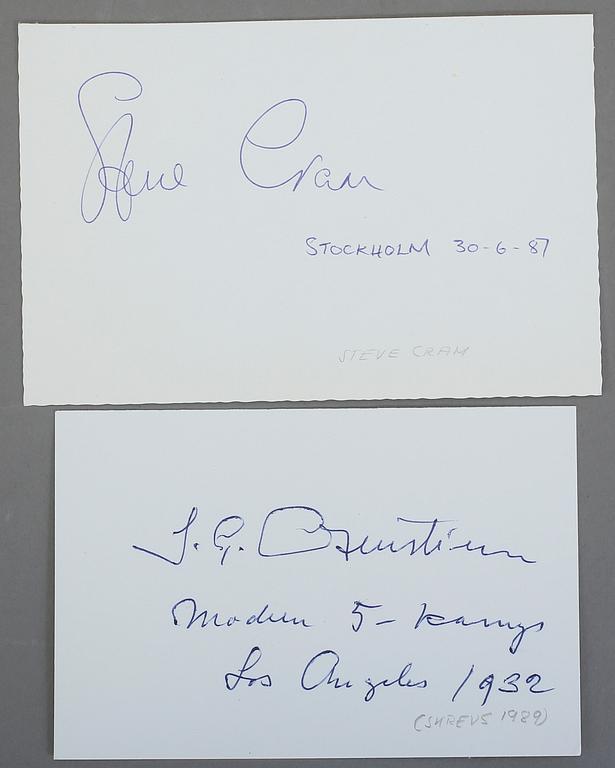 Steve Cram
STOCKHOLM 30-6-87
STEVE CRAM
J. G. Oxenstierna
Modern 5-kamps
Los Angeles 1932
(SKREVS 1989)